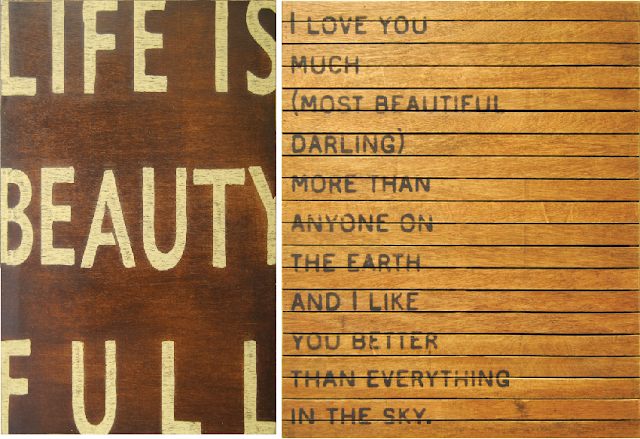 LIFE IS
BEAUTY
FULL
I LOVE YOU
MUCH
(MOST BEAUTIFUL
DARLING)
MORE THAN
ANYONE ON
THE EARTH
AND I LIKE
YOU BETTER
THAN EVERYTHING
IN THE SKY.